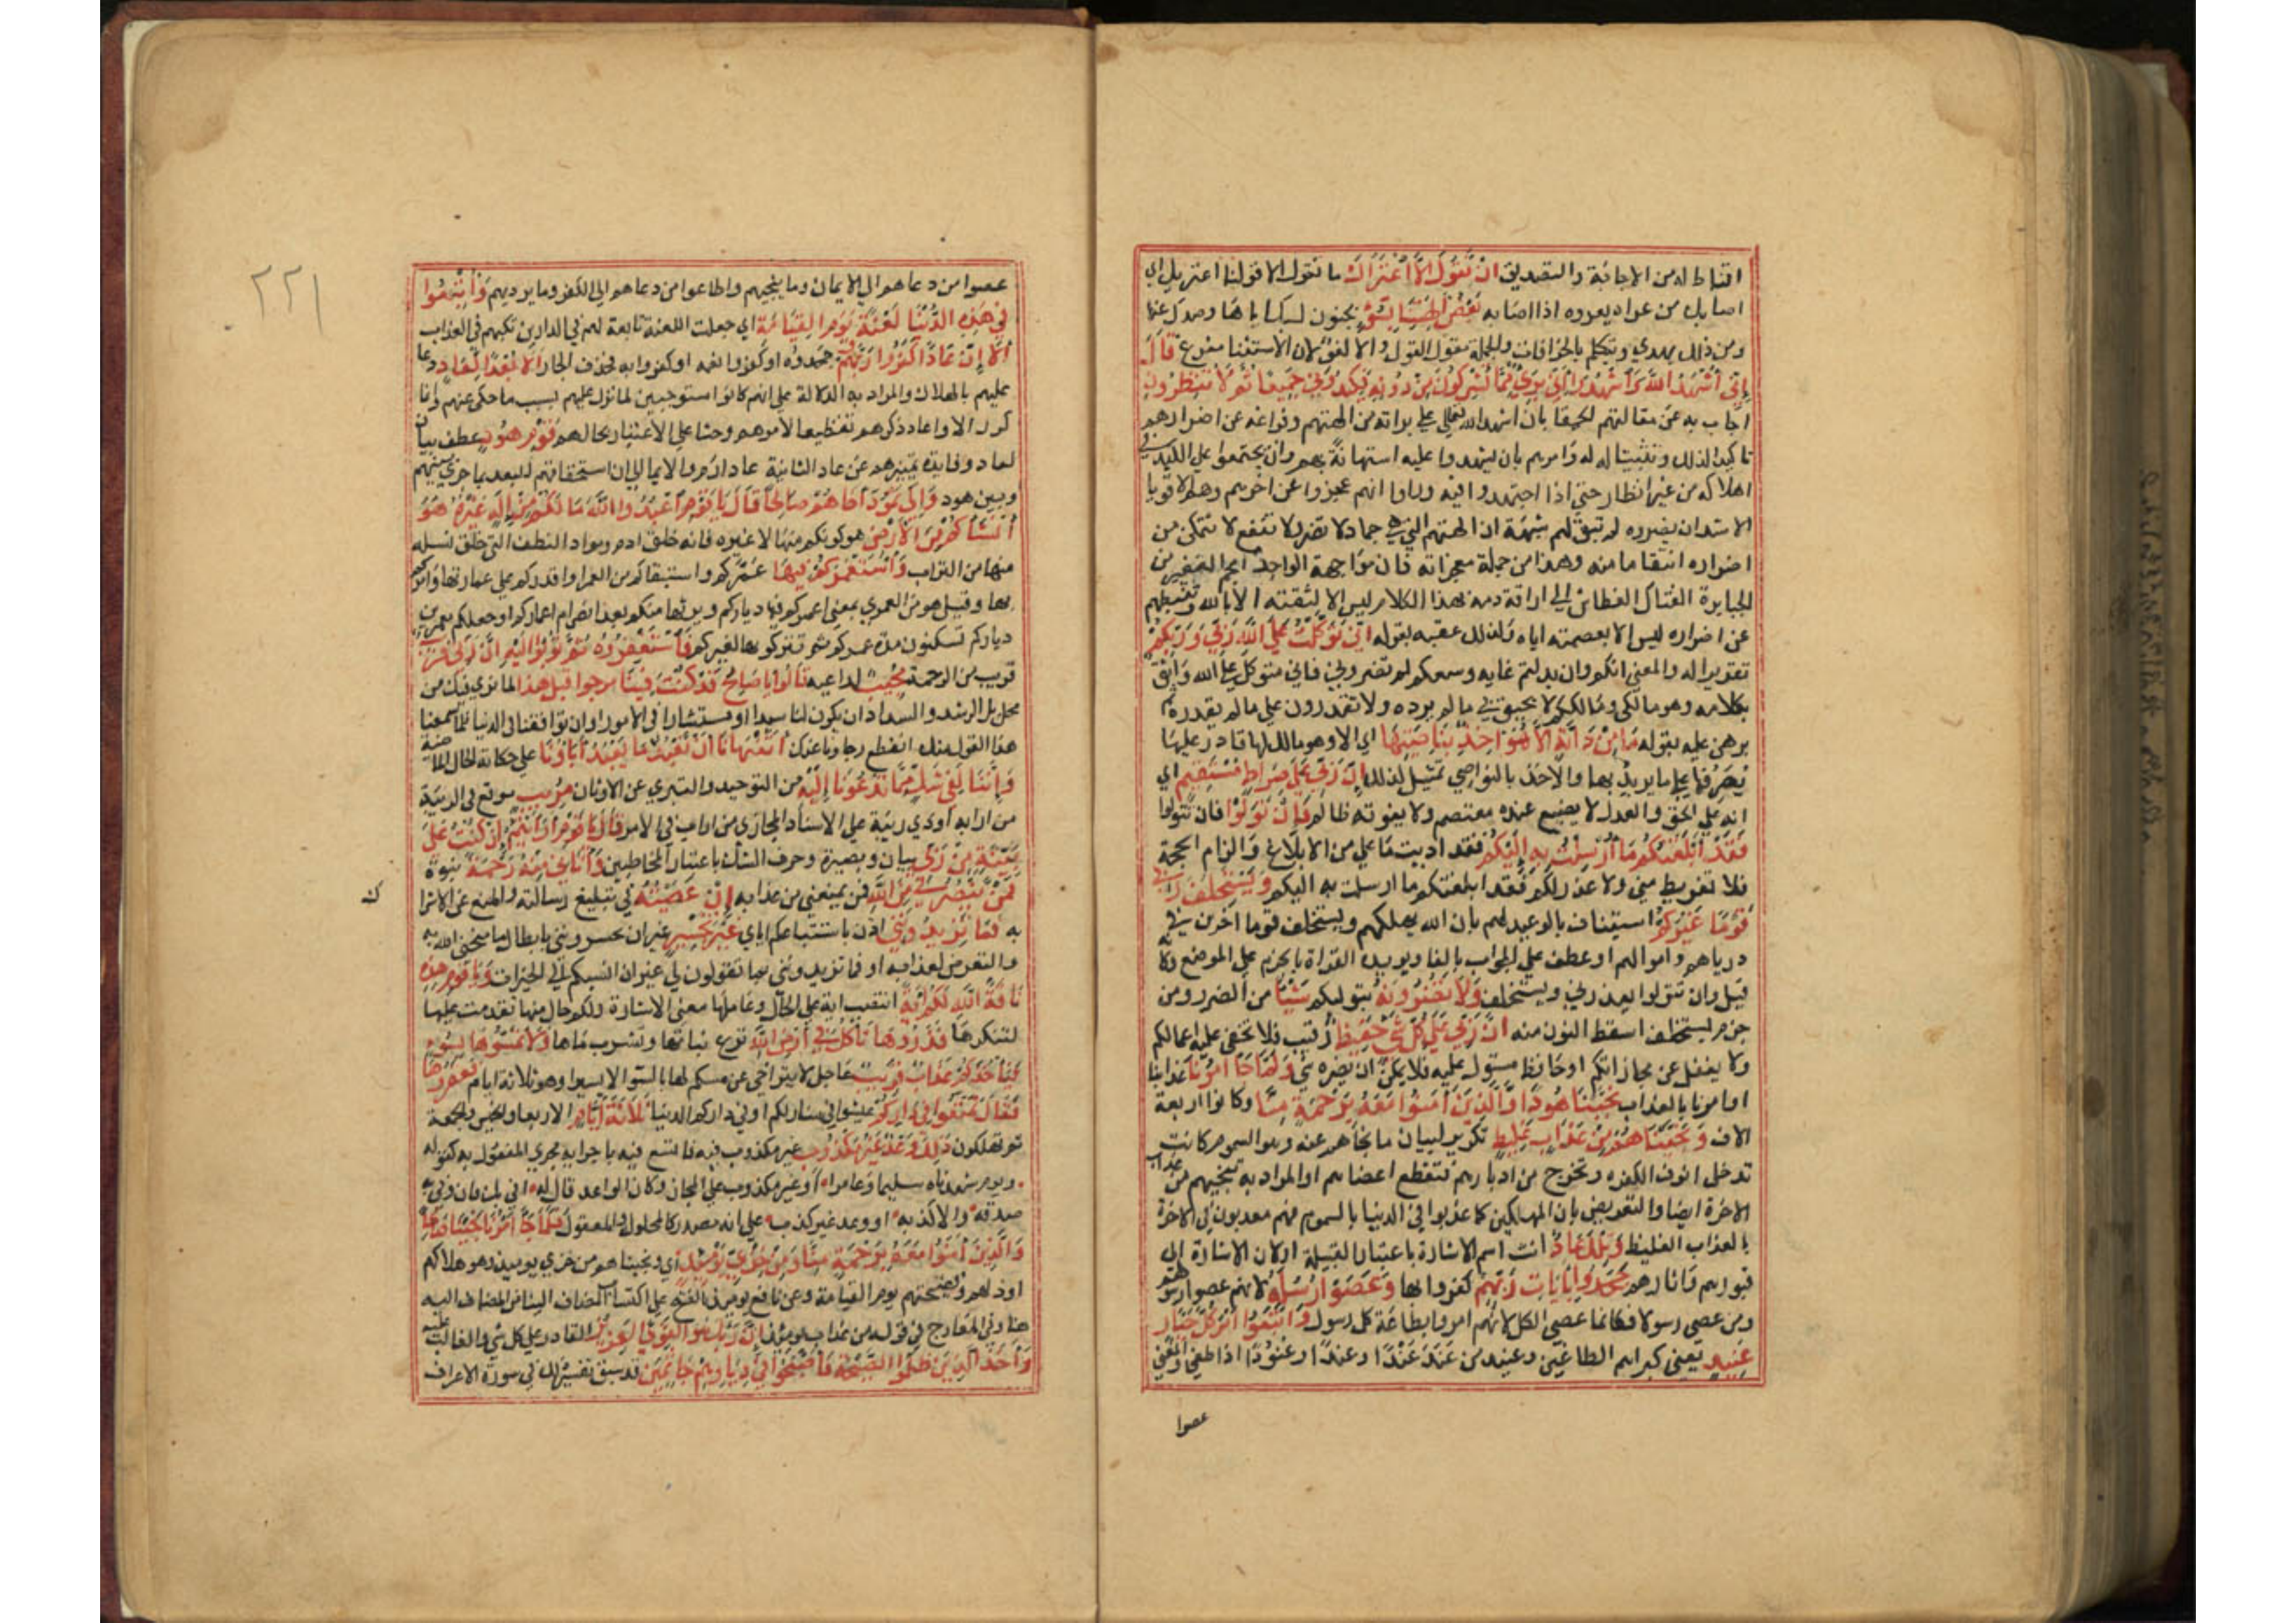 اقناط له من الاجابة والتصديق ان نقول الا اعتراك ما نقول الا قولنا اعتريك اي
اصابك من عراه يعروه اذا اصابه بعض الهتنا بسوء بجنون لسبك اياها وصدك عنها
ومن ذلك تهذي وتتكلم بالخرافات والجملة مقول القول والا لغو لان الاستثنا مفرغ قال
اني اشهد الله واشهدوا اني بريء مما تشركون من دونه فكيدوني جميعا ثم لا تنظرون
اجاب به عن مقالتهم الحمقا بان اشهد الله تعالى على براته من الهتهم وفراغه عن اضرارهم
تاكيدا لذلك وتثبيتا له وامرهم بان يشهدوا عليه استهانة بهم وان يجتمعوا على الكيد في
اهلاكه من غير انظار حتى اذا اجتهدوا فيه وراوا انهم عجزوا عن اخرهم وهم الاقويا
الاشدا ان يضروه لم تبق لهم شبهة ان الهتهم التي هي جماد لا تضر ولا تنفع لا تتمكن من
اضراره انتقاما منه وهذا من جملة معجزاته فان مواجهة الواحد الجم الغفير من
الجبابرة الفتاك العطاش الى اراقة دمه بهذا الكلام ليس الا لثقته بالله وتثبيطهم
عن اضراره ليس الا بعصمته اياه ولذلك عقبه بقوله اني توكلت على الله ربي وربكم
تقريرا له والمعنى انكم وان بذلتم غاية وسعكم لم تضروني فاني متوكل على الله واثق
بكلاءته وهو مالكي ومالككم لا يحيق بي ما لم يرده ولا تقدرون على ما لم يقدره ثم
برهن عليه بقوله ما من دابة الا هو اخذ بناصيتها اي الا وهو مالك لها قادر عليها
يصرفها على ما يريد بها والاخذ بالنواصي تمثيل لذلك ان ربي على صراط مستقيم اي
انه على الحق والعدل لا يضيع عنده معتصم ولا يفوته ظالم فان تولوا فان تتولوا
فقد ابلغتكم ما ارسلت به اليكم فقد اديت ما علي من الابلاغ والزام الحجة
فلا تفريط مني ولا عذر لكم فقد ابلغتكم ما ارسلت به اليكم ويستخلف ربي
قوما غيركم استيناف بالوعيد لهم بان الله يهلكهم ويستخلف قوما اخرين في
ديارهم واموالهم او عطف على الجواب بالفا ويويده القراة بالجزم على الموضع وكانه
قيل وان تتولوا يعذرني ويستخلف ولا تضرونه بتوليكم شيئا من الضرر ومن
جزم يستخلف اسقط النون منه ان ربي على كل شي حفيظ رقيب فلا تخفى عليه اعمالكم
ولا يغفل عن مجازاتكم او حافظ مستول عليه فلا يمكن ان يضره شي ولما جا امرنا عذابنا
او امرنا بالعذاب نجينا هودا والذين امنوا معه برحمة منا وكانوا اربعة
الاف ونجيناهم من عذاب غليظ تكرير لبيان ما نجاهم عنه وهو السموم كانت
تدخل انوف الكفرة وتخرج من ادبارهم فتقطع اعضاهم او المراد به تنجيهم من عذاب
الاخرة ايضا والتعريض بان المهلكين كما عذبوا في الدنيا بالسموم فهم معذبون في الاخرة
بالعذاب الغليظ وتلك عاد انث اسم الاشارة باعتبار القبيلة او لان الاشارة الى
قبورهم واثارهم جحدوا بايات ربهم كفروا بها وعصوا رسله لانهم عصوا رسولهم
ومن عصى رسولا فكانما عصى الكل لانهم امروا بطاعة كل رسول واتبعوا امر كل جبار
عنيد يعني كبراهم الطاغين وعنيد من عند عندا وعندا وعنودا اذا طغى والمعنى
عصوا
٢٢١
عصوا من دعاهم الى الايمان وما ينجيهم واطاعوا من دعاهم الى الكفر وما يرديهم واتبعوا
في هذه الدنيا لعنة ويوم القيامة اي جعلت اللعنة تابعة لهم في الدارين تكبهم في العذاب
الا ان عادا كفروا ربهم جحدوه او كفروا نعمه او كفروا به فحذف الجار الا بعدا لعاد دعا
عليهم بالهلاك والمراد به الدلالة على انهم كانوا مستوجبين لما نزل عليهم بسبب ما حكى عنهم وانما
كرر الا واعاد ذكرهم تفظيعا لامرهم وحثا على الاعتبار بحالهم قوم هود عطف بيان
لعاد وفايدته تمييزهم عن عاد الثانية عاد ارم والايما الى ان استحقاقهم للبعد بما جرى بينهم
وبين هود والى ثمود اخاهم صالحا قال يا قوم اعبدوا الله ما لكم من اله غيره هو
انشاكم من الارض هو كونكم منها لا غيره فانه خلق ادم ومواد النطف التي خلق نسله
منها من التراب واستعمركم فيها عمركم واستبقاكم من العمر او اقدركم على عمارتها وامركم
بها وقيل هو من العمرى بمعنى اعمركم فيها دياركم ويرثها منكم بعد انصرام اعماركم او جعلكم معمرين
دياركم تسكنون مدة عمركم ثم تتركونها لغيركم فاستغفروه ثم توبوا اليه ان ربي قريب
قريب من الرحمة مجيب لداعيه قالوا يا صالح قد كنت فينا مرجوا قبل هذا لما نرى فيك من
مخايل الرشد والسداد ان يكون لنا سيدا او مستشارا في الامور او ان توافقنا في الدين فلما سمعنا
هذا القول منك انقطع رجاونا عنك اتنهانا ان نعبد ما يعبد اباونا على حكاية الحال الماضية
واننا لفي شك مما تدعونا اليه من التوحيد والتبري عن الاوثان مريب موقع في الريبة
من ارابه او ذي ريبة على الاسناد المجازي من اراب في الامر قال يا قوم ارايتم ان كنت على
بينة من ربي بيان وبصيرة وحرف الشك باعتبار المخاطبين واتاني منه رحمة نبوة
فمن ينصرني من الله فمن يمنعني من عذابه ان عصيته في تبليغ رسالته والمنع عن الاشراك
به فما تزيدونني اذن باستتباعكم اياي غير تخسير غير ان تخسرونني بابطال ما منحني الله به
والتعرض لعذابه او فما تزيدونني بما تقولون لي غير ان انسبكم الى الخسران ويا قوم هذه
ناقة الله لكم اية انتصب اية على الحال وعاملها معنى الاشارة ولكم حال منها تقدمت عليها
لتنكرها فذروها تاكل في ارض الله ترع نباتها وتشرب ماها ولا تمسوها بسوء
فياخذكم عذاب قريب عاجل لا يتراخى عن مسكم لها بالسوء الا يسيرا وهو ثلاثة ايام فعقروها
فقال تمتعوا في داركم عيشوا في منازلكم او في داركم الدنيا ثلاثة ايام الاربعا والخميس والجمعة
ثم تهلكون ذلك وعد غير مكذوب غير مكذوب فيه فاتسع فيه باجرايه مجرى المفعول به كقوله
ويوم شهدناه سليما وعامرا او غير مكذوب على المجاز وكان الواعد قال له افي بك فان وفى به
صدقه والا كذبه او وعد غير كذب على انه مصدر كالمجلود والمعقول فلما جا امرنا نجينا صالحا
والذين امنوا معه برحمة منا ومن خزي يومئذ اي ونجيناهم من خزي يوميذ وهو هلاكهم
او ذلهم وفضيحتهم يوم القيامة وعن نافع يوميذ بالفتح على اكتساب المضاف البنا من المضاف اليه
هنا وفي المعارج في قوله من عذاب يوميذ ان ربك هو القوي العزيز القادر على كل شي والغالب عليه
واخذ الذين ظلموا الصيحة فاصبحوا في ديارهم جاثمين قد سبق تفسيره في سورة الاعراف